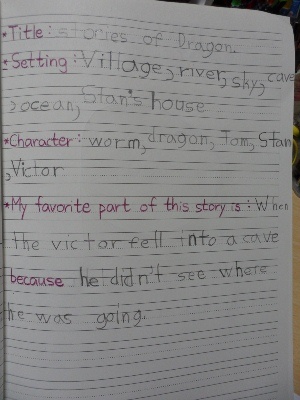 *Title: stories of Dragon.
*Setting: Village, river, sky, cave
, ocean, Stan's house
*Character: worm, dragon, Tom, Stan
, Victor
*My favorite part of this story is: When
the victor fell into a cave
because he didn't see where
he was going.